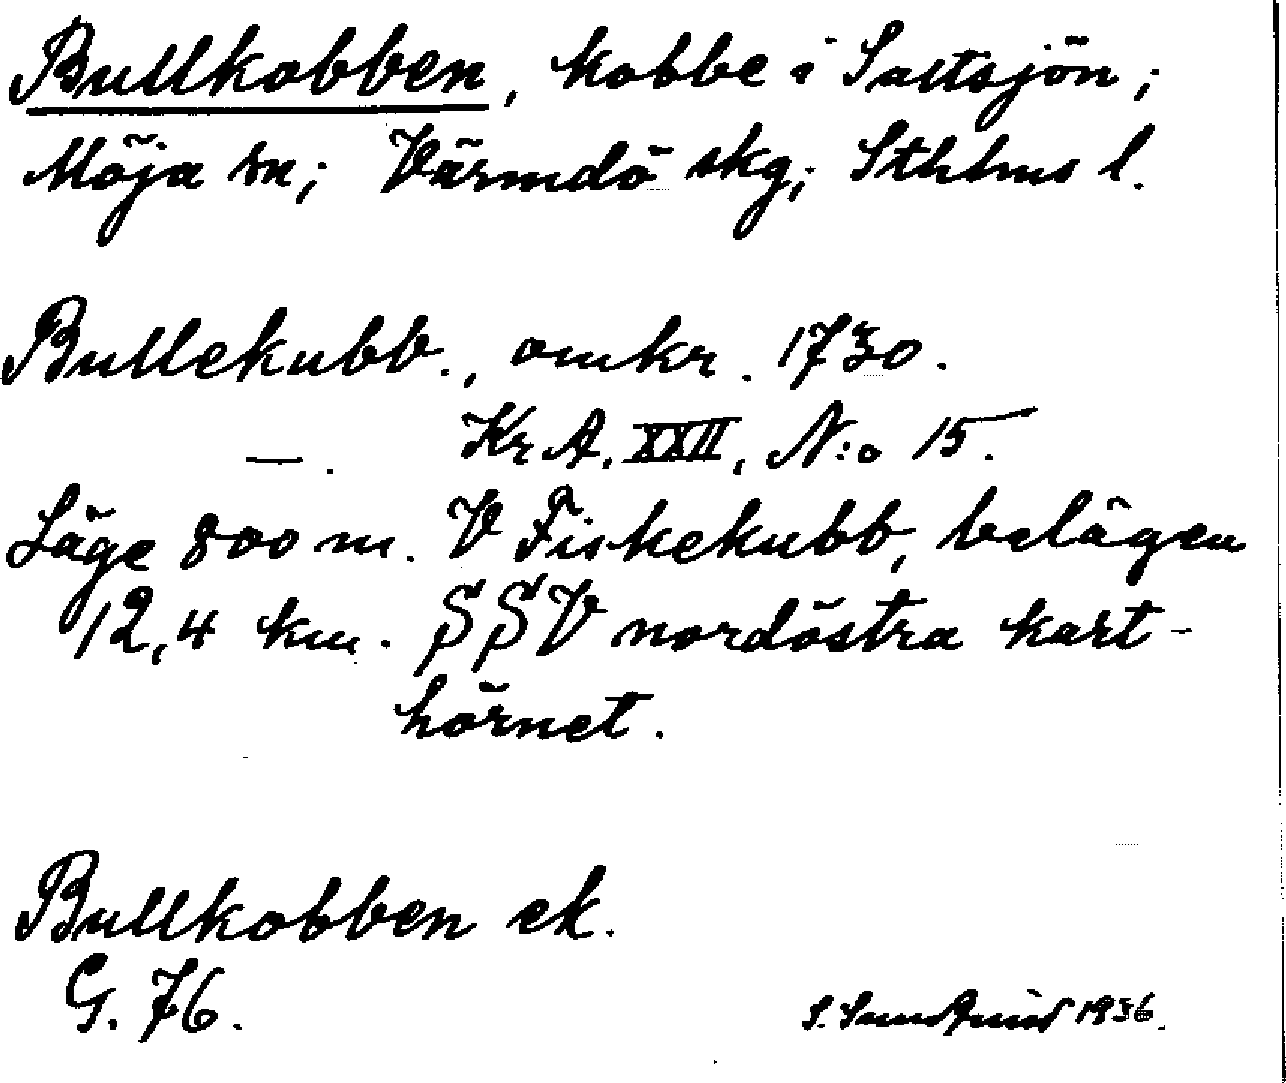 Bullkobben, kobbe i Saltsjön;
Möja sn; Värmdö skg; Sthlms l.
Bullekubb., omkr. 1730.
—. Kr A. XXII, N:o 15.
Läge 800 m. V Fiskekubb, belägen
12,4 km. SSV nordöstra kart-
hörnet.
Bullkobben ek.
G. 76.
S. 1936.